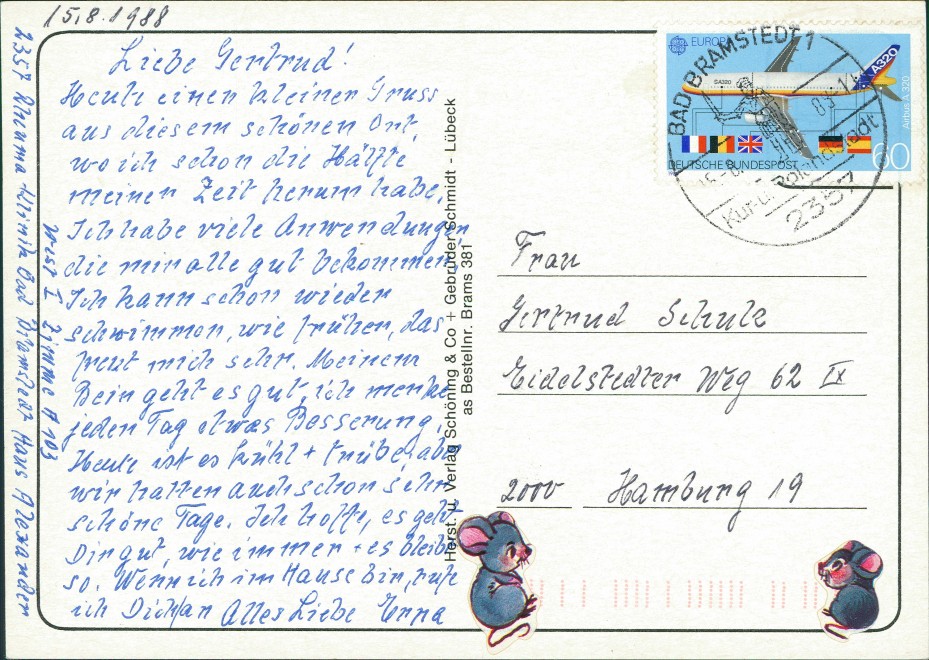 15.8.1988
Liebe Gertrud!
Heute einen kleiner Gruss
aus diesem schönen Ort,
wo ich schon die Hälfte
meiner Zeit herum habe.
Ich habe viele Anwendungen,
die mir alle gut bekommen.
Ich kann schon wieder
schwimmen, wie früher, das
freut mich sehr. Meinem
Bein geht es gut, ich merke
jeden Tag etwas Besserung.
Heute ist es kühl + trübe, aber
wir hatten auch schon sehr
schöne Tage. Ich hoffe, es geht
Dir gut, wie immer + es bleibt
so. Wenn ich im Hause bin, rufe
ich Dich an Alles Liebe Erna
2357 Rheuma Klinik Bad Bramstedt Haus Alexander
West I Zimme A 103
Horst. u. Verlag Schöning & Co + Gebrüder Schmidt - Lübeck
as Bestellnr. Brams 381
EUROPA
SA320
A320
Airbus A 320
DEUTSCHE BUNDESPOST
60
BAD BRAMSTEDT 1
Kur-u. Rolandstadt
2357
Frau
Gertrud Schulz
Eidelstedter Weg 62 IX
2000 Hamburg 19